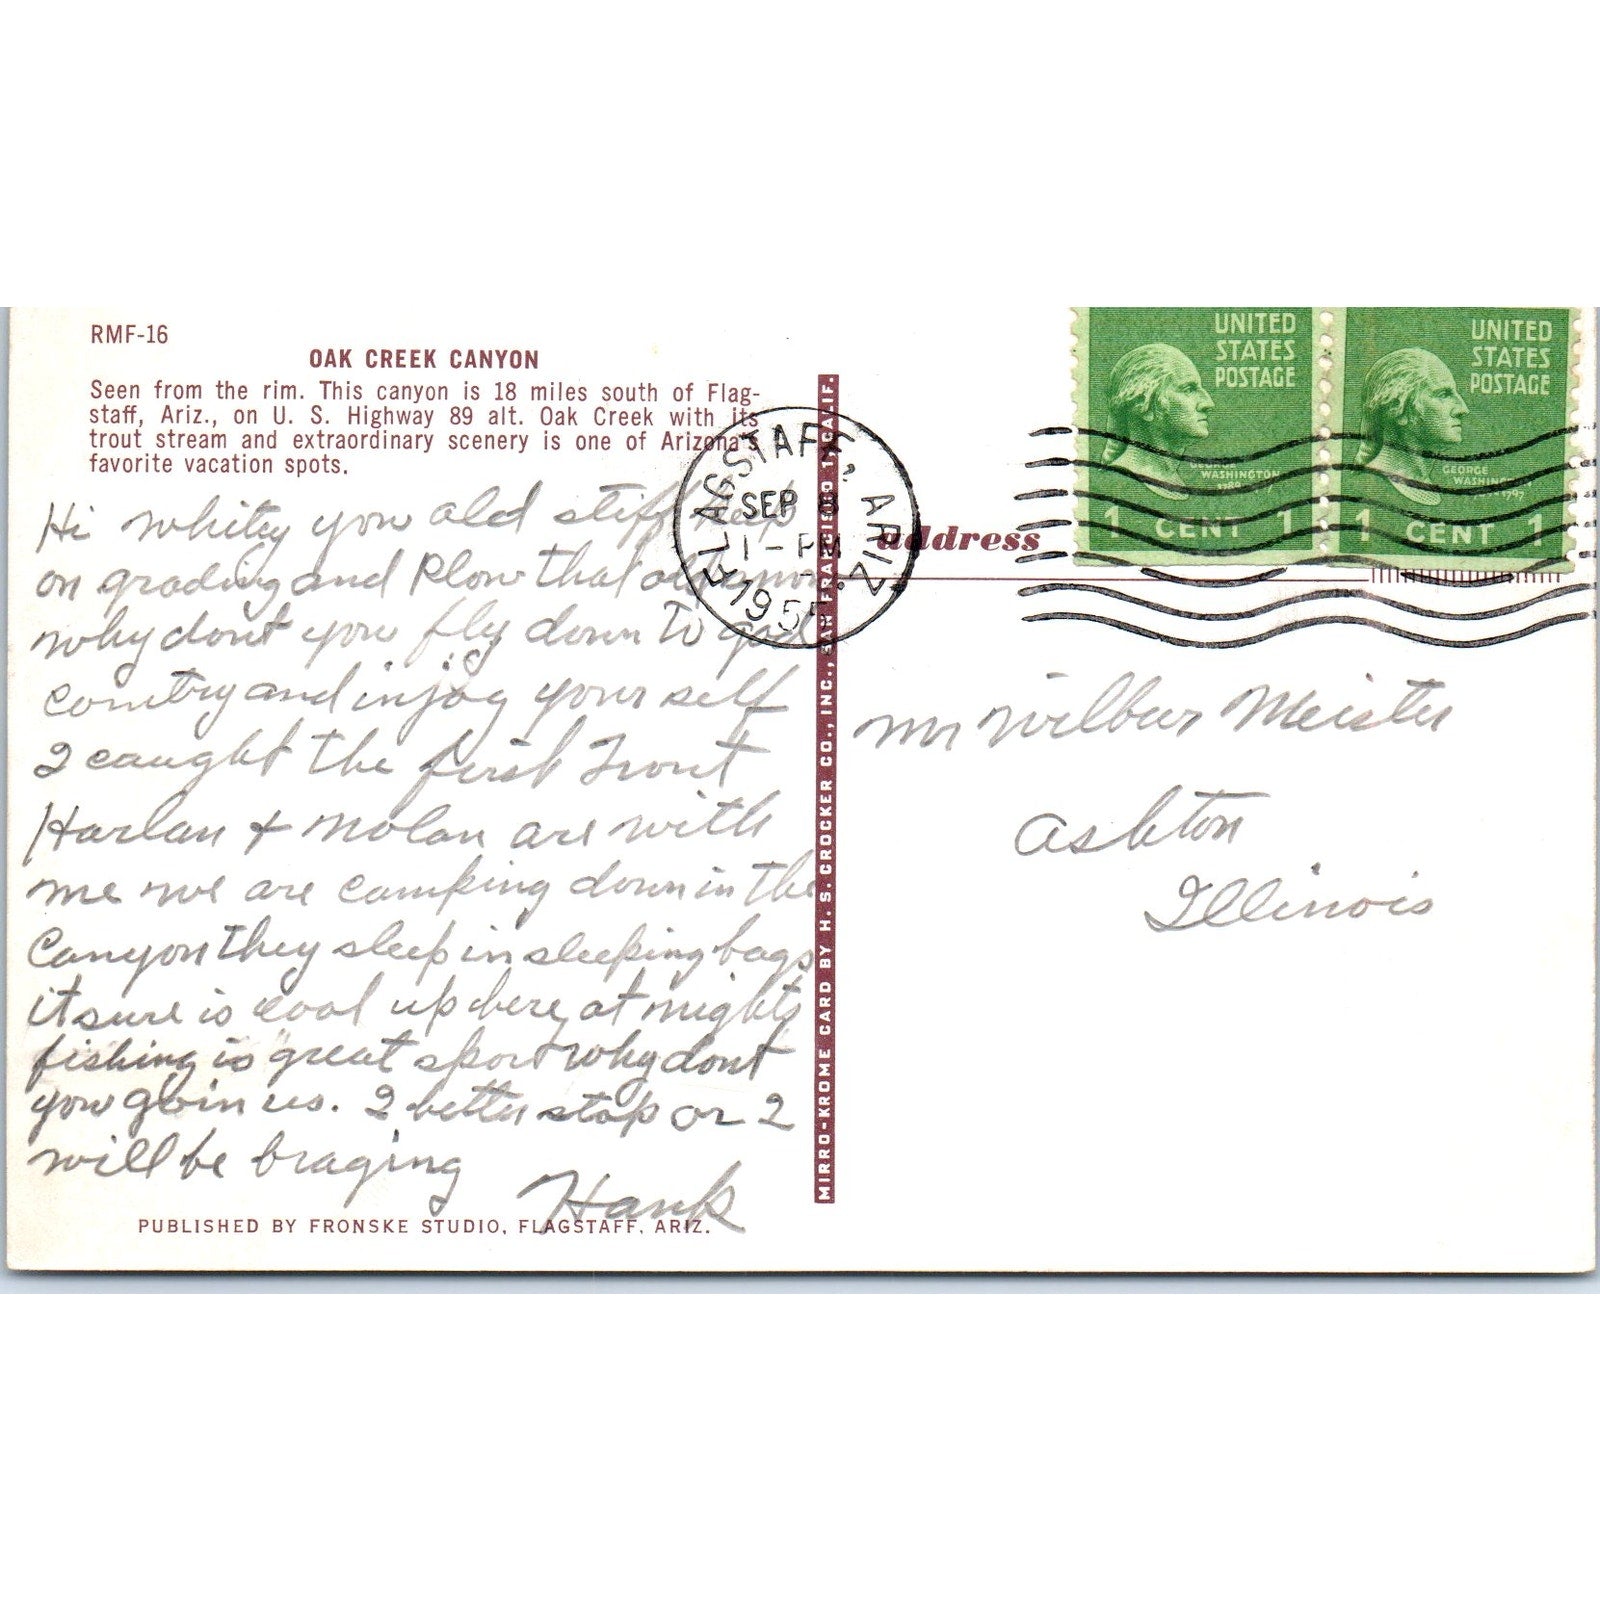 RMF-16
OAK CREEK CANYON
Seen from the rim. This canyon is 18 miles south of Flag-
staff, Ariz., on U. S. Highway 89 alt. Oak Creek with its
trout stream and extraordinary scenery is one of Arizona's
favorite vacation spots.
Hi Whitey you old stiff keep
on grading and Plow that old
why dont you fly down to god
country and injoy your self
I caught the first Trout
Harlan & Nolan are with
me we are camping down in the
Canyon they sleep in sleeping bags
it sure is cool up here at nights
fishing is great sport why dont
you goin us. I better stop or I
will be braging
Hank
PUBLISHED BY FRONSKE STUDIO, FLAGSTAFF, ARIZ.
MIRRO-KROME CARD BY H. S. CROCKER CO., INC., SAN FRANCISCO 1, CALIF.
FLAGSTAFF, ARIZ.
SEP 8
1 - PM
195
address
UNITED
STATES
POSTAGE
GEORGE
WASHINGTON
1 CENT 1
UNITED
STATES
POSTAGE
GEORGE
WASHINGTON
1797
1 CENT 1
Mr Wilbur Meister
Ashton
Illinois